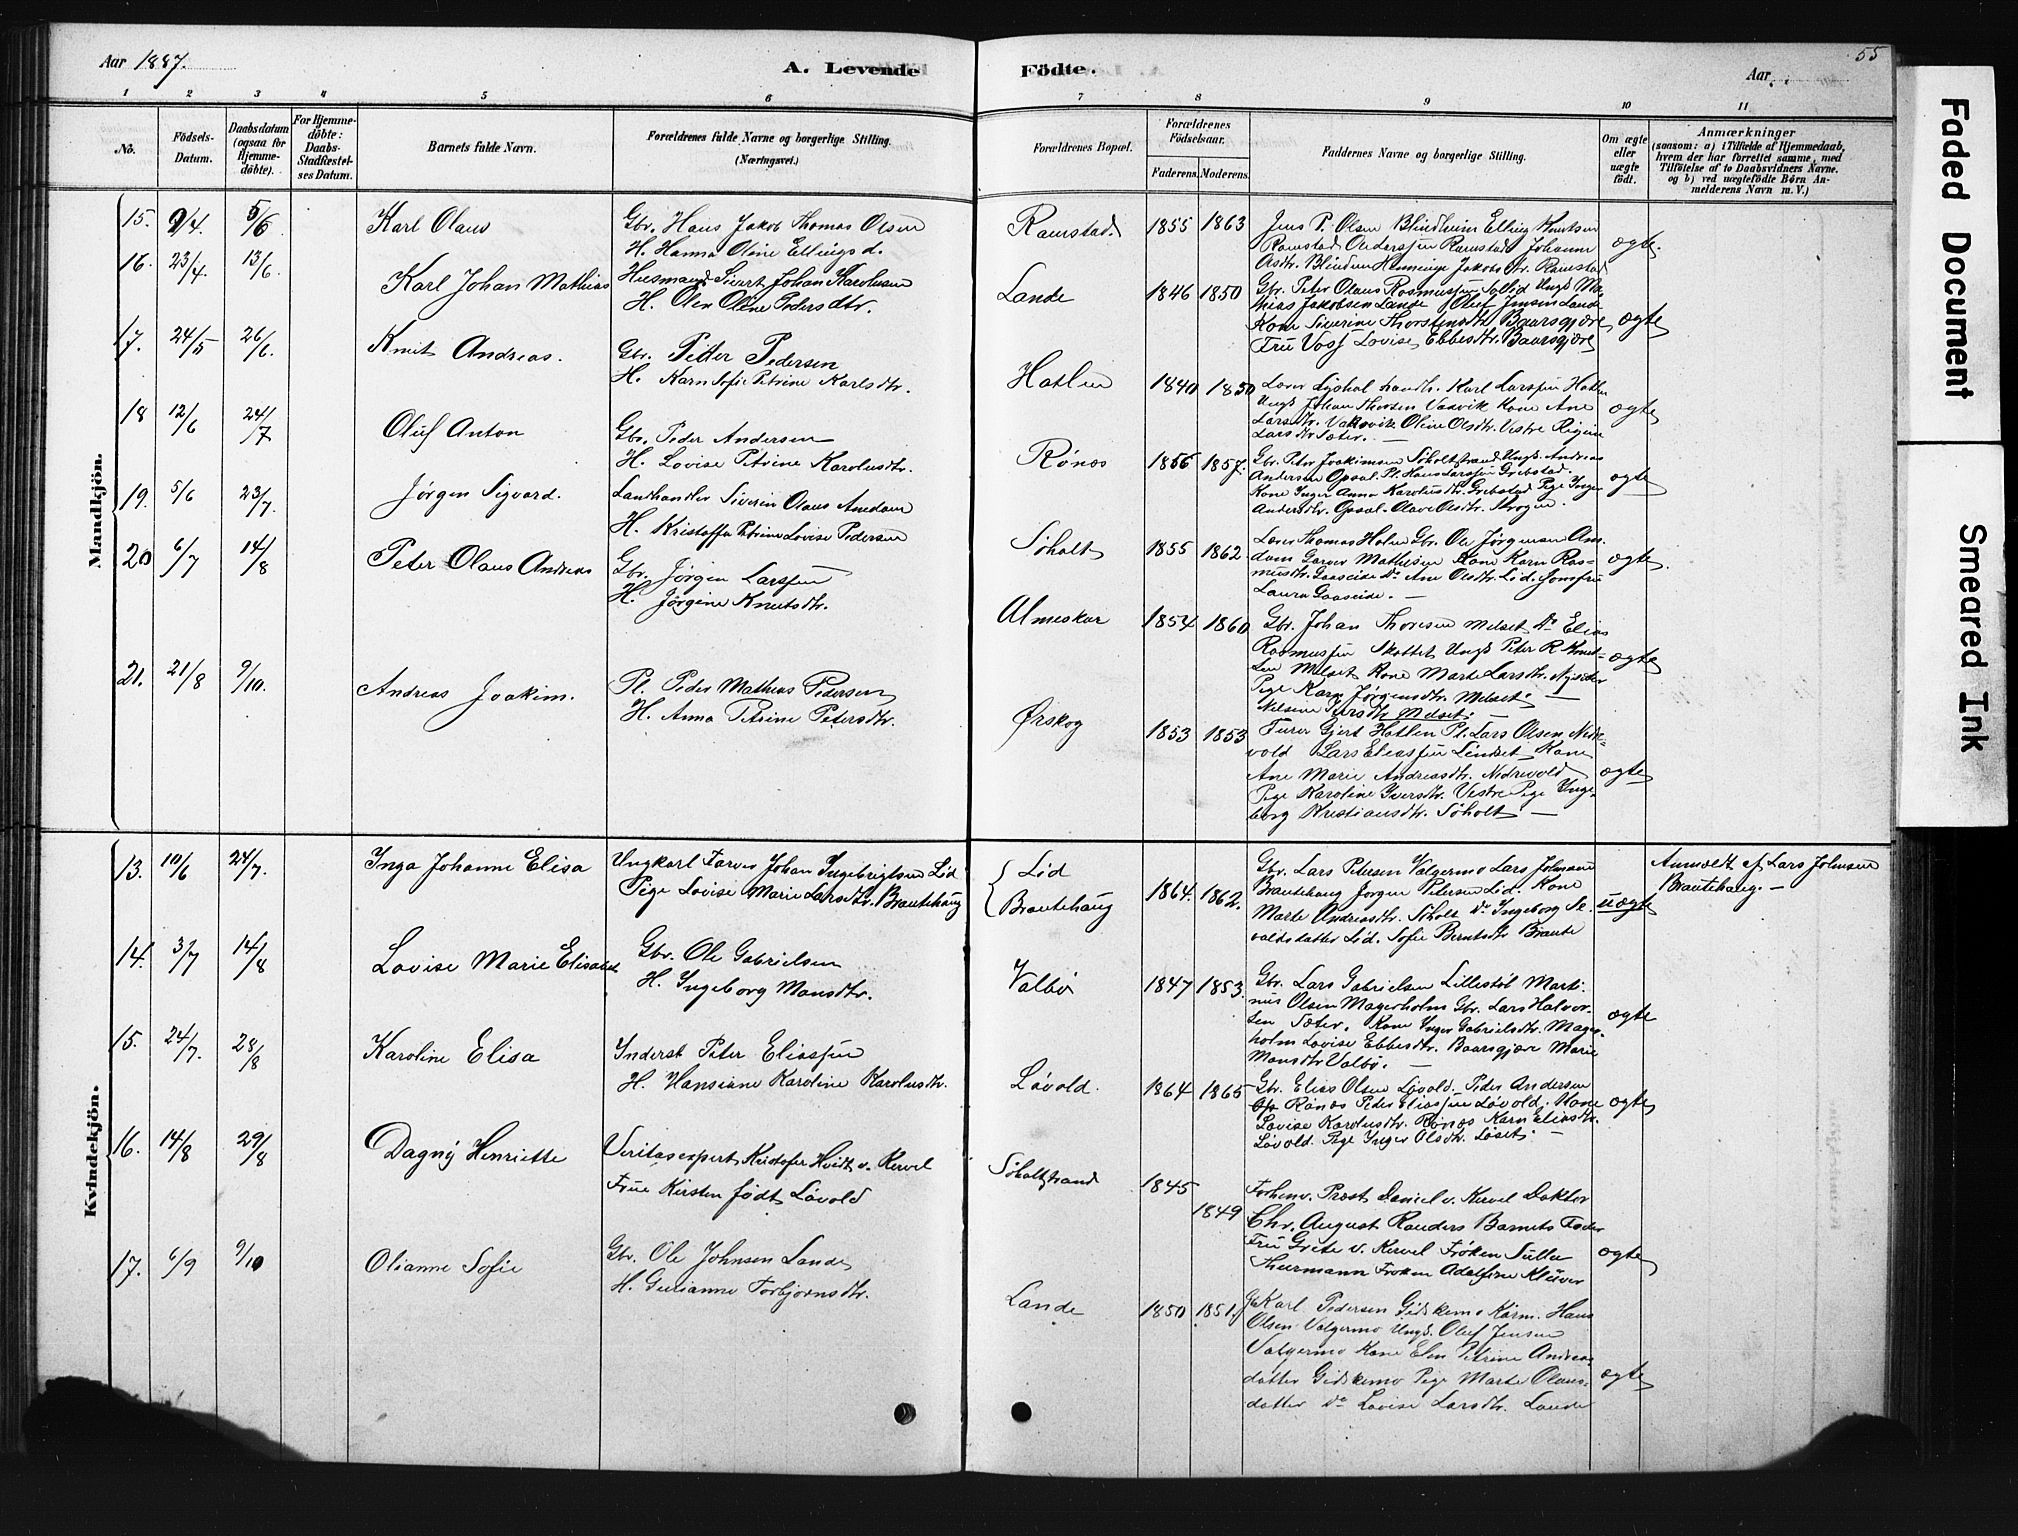 Aar 1887.
A. Levende
Födte.
Aar
55
1 2 3 4 5 6 7 8 9 10 11
No.
Födsels-Datum.
Daabsdatum (ogsaa for Hjemme-döbte).
For Hjemme-döbte: Daabs-Stadfæstel-ses Datum.
Barnets fulde Navn.
Forældrenes fulde Navne og borgerlige Stilling.
(Næringsvei.)
Forældrenes Bopæl.
Forældrenes Födselsaar.
Faderens. Moderens.
Faddernes Navne og borgerlige Stilling.
Om ægte eller uægte födt.
Anmærkninger
(saasom: a) i Tilfælde af Hjemmedaab, hvem der har forrettet samme, med Tilföielse af to Daabsvidners Navne. og b) ved uægtefödte Börn An-melderens Navn m. V.)
Mandkjön.
15. 9/4. 5/6 Karl Olaus
Gbr. Hans Jakob Thomas Olsen
H. Hanna Oline Ellingsd.
Ramstad. 1855 1863
Jens P. Olsen Blindheim Elling Knutsen
Ramstad Anderssen Ramstad Johanne
Olsdtr. Blindh Henninge Jakobsdtr. Ramstad
ægte.
16. 23/4. 13/6. Karl Johan Mathias
Husmand Sivert Johan Karolusen
H. Olen Oline Pedersdtr.
Lande 1846 1850
Gbr. Peter Olaus Rasmussen Ungk Ma-
thias Jakobsen Lande Oluf Jensen Lande
Kone Siverine Thorstensdtr. Baarsgjære
Fru Voss Lovise Ebbesdtr. Baarsgjære
ægte
17. 24/5 26/6. Knut Andreas.
Gbr. Petter Pedersen
H. Karn Sofie Petrine Karlsdtr.
Hatlen 1840 1850
Lærer Karl Larssen Hatlen
Ungk Johan Thorsen Vadvik Kone Ane
Larsdtr. Oline Olsdtr. Vestre Regine
Larsdtr Sæter. —
ægte
18 12/6 24/7 Oluf Anton
Gbr. Peder Andersen
H. Lovise Petrine Karolusdtr.
Rönos 1856 1857.
Gbr. Peter Joakimsen Söholtstrand Ungk. Andreas
Andersen Opsal. Pl. Hans Larssen Grebstad.
Kone Inger Anna Karolusdtr. Grebstad Pige Inger
Andersdtr. Opsal. Olave Olsdtr. Skogen.
ægte
19. 5/6 23/7. Jörgen Sigvard.
Landhandler Siverin Olaus Amdam
H. Kristoffa Petrine Lovise Pedersen
Söholt 1855 1862.
Lærer Thomas Holm Gbr. Ole Jörgensen Am-
dam Garver Mathisen Kone Karn Ras-
musdtr. Gaaseide Do Ane Olsdtr. Lid. Jomfru
Laura Gaaseide. —
ægte.
20 6/7 14/8 Peter Olaus Andreas
Gbr. Jörgen Larssen
H. Jörgine Knutsdtr.
Almeskar 1854 1860
Gbr. Johan Thoresen Melset Do Elias
Rasmussen Skottet Ungk Peter R. Knut-
sen Melset Kone Marte Larsdtr. Nysæter
Pige Karn Jörgensdtr. Melset. —
Nelsine Iversdtr Melset.
ægte
21. 21/8 9/10. Andreas Joakim.
Pl. Peder Mathias Pedersen
H. Anna Petrine Petersdtr.
Örskog 1853 1853
Furer Gjert Hatlen Pl. Lars Olsen Nedre-
vold Lars Eliassen Lindset Kone
Ane Marie Andreasdtr. Nedrevold
Pige Karoline Iversdtr. Vestre Pige Inge-
borg Kristiansdtr. Söholt —
ægte
Kvindekjön.
13. 10/6 24/7. Inga Johanne Elisa
Ungkarl Farver Johan Ingebrigtsen Lid
Pige Lovise Marie Larsdtr. Brautehaug
Lid
Brautehaug
1864. 1862.
Gbr. Lars Petersen Valgermo Lars Johnsen
Brautehaug Jörgen Petersen Lid. Kone
Marte Andreasdtr. Söholt Do Ingeborg Se-
valdsdatter Lid. Sofie Berntsdtr Braute
uægte
Anmeldt af Lars Johnsen
Brautehaug. —
14. 3/7 14/8 Lovise Marie Elisabet
Gbr. Ole Gabrielsen
H. Ingeborg Monsdtr.
Valbö 1847 1853.
Gbr. Lars Gabrielsen Lillestöl Marti-
nus Olsen Magerholm Gbr. Lars Halvor-
sen Sæter. Kone Inger Gabrielsdtr. Mager-
holm Lovise Ebbesdtr. Baarsgjære Marie
Monsdtr Valbö. —
ægte
15. 24/7. 28/8 Karoline Elisa
Inderst Peter Eliassen
H. Hansine Karoline Karolusdtr.
Lövold. 1864 1865
Gbr. Elias Olsen Lövold. Peder Andersen
Rönos Peder Eliassen Lövold. Kone
Lovise Karolusdtr. Rönos Karn Eliasdtr.
Lövold. Pige Inger Olsdtr. Löset. —
ægte
16. 14/8 29/8 Dagny Henriette
Veritasexpert Kristofer Hvidt v. Kervel
Frue Kirsten födt Lövold
Söholtstrand 1845 1849
Forhenv. Prost Daniel v. Kervel Doktor
Chr. August Randers Barnets Fader
Fru Grete v. Kervel Fröken Sulla
Thurmann Fröken Adelfine Klüver
ægte
17. 6/9 9/10 Olianne Sofie
Gbr. Ole Johnsen Lande
H. Gurianne Torbjornsdtr.
Lande 1850 1851.
Gbr Karl Pedersen Gidskemo Kårm. Hans
Olsen Valgermo Ungk. Oluf Jensen
Valgermo Kone Elen Petrine Andreas
datter Gidskemo Pige Marte Olaus-
datter Do Lovise Larsdtr. Lande
ægte
Faded Document
Smeared Ink